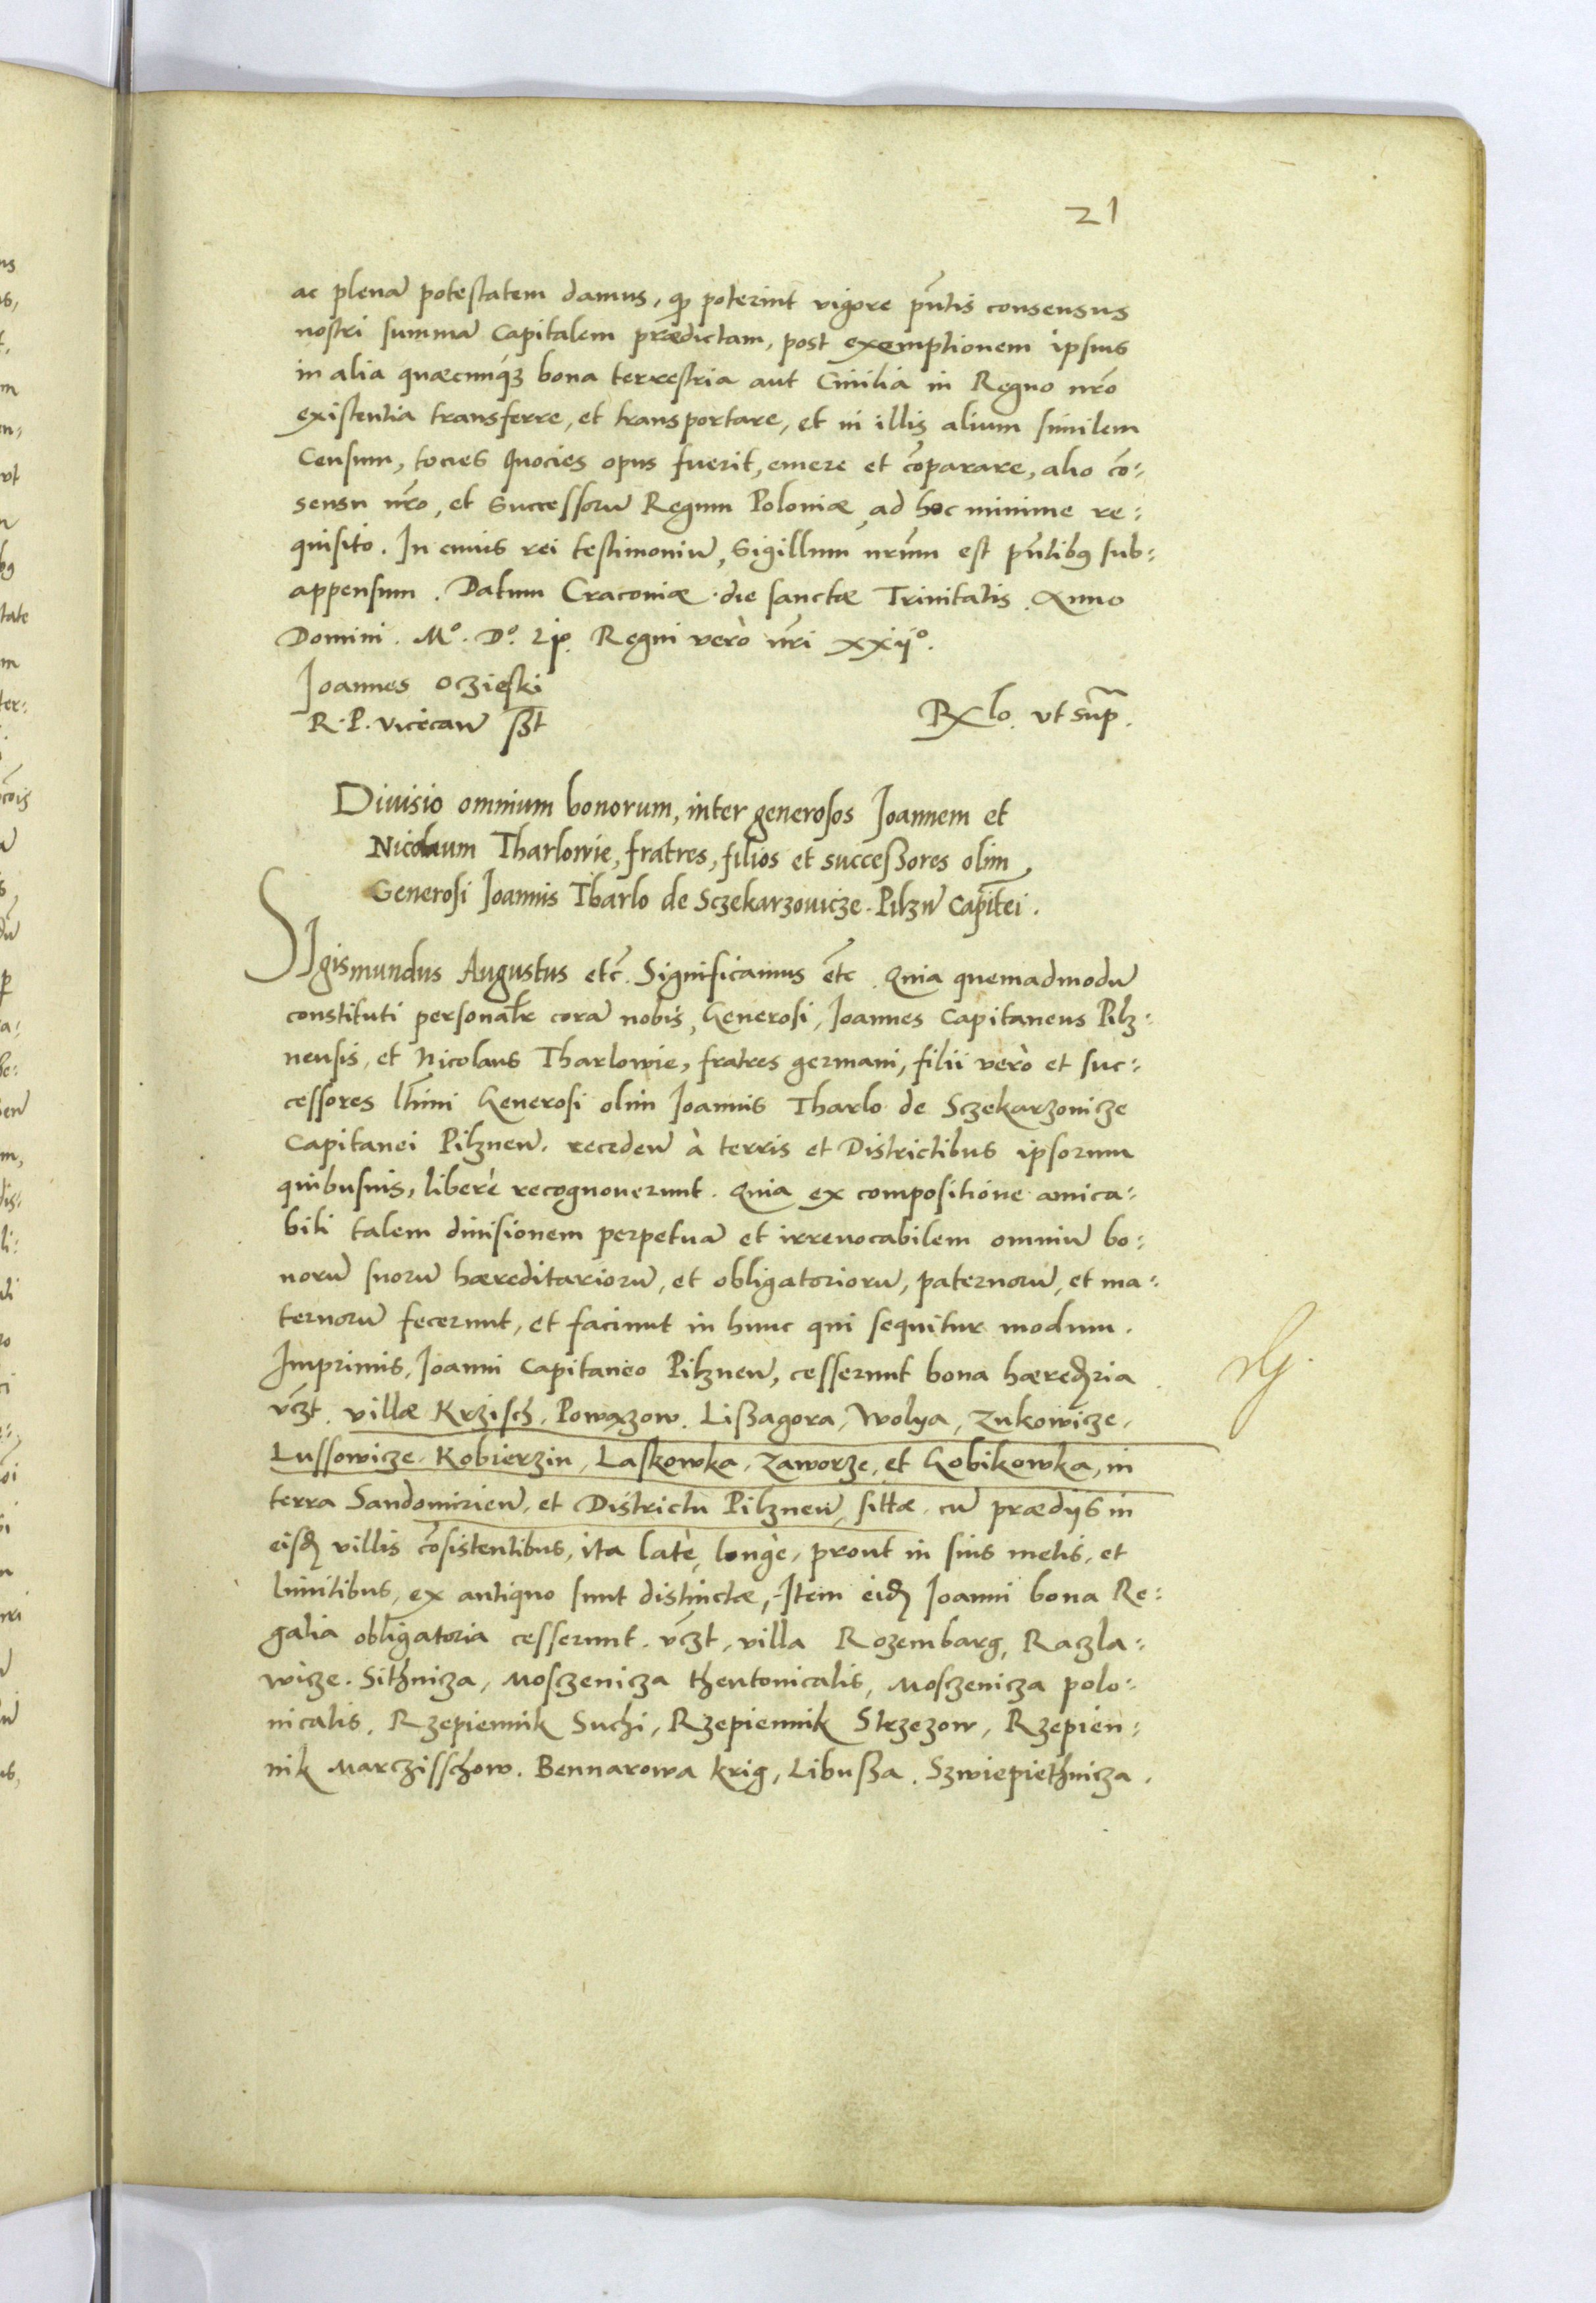 21
ac plenā potestatem damus, qđ poterint vigore pñtis consensus
nostri summā Capitalem prædictam, post exemptionem ipsius
in alia quæcunqȝ bona terrestria aut Ciuilia in Regno nrō
existentia transferre, et transportare, et in illis alium similem
Censum, tocies quocies opus fuerit, emere et cōparare, alio cō-
sensu nrō, et Successorū Regum Poloniæ ad hoc minime re-
quisito. In cuius rei testimoniū, Sigillum nrūm est pñtibꝰ sub-
appensum. Datum Cracoviæ die sanctæ Trinitatis. Anno
Domini. Mº. Dº. Ljº. Regni verò nrī xxijº.
Joannes Oczieski
R. P. Vicecan̄ sszt
Rxlo. vt supª.
Diuisio omnium bonorum, inter generosos Joannem et
Nicolaum Tharlowie, fratres, filios et succeßores olim
Generosi Joannis Tharlo de Sczekarzouicze. Pilzn̄ Capitei.
SIgismundus Augustus etc̄. Significamus et̄c. Quia quemadmodū
constituti personalr̄ corā nobis, Generosi, Joannes Capitaneus Pilz-
nensis, et Nicolaus Tharlowie, fratres germani, filii verò et suc-
cessores ltīmi Generosi olim Joannis Tharlo de Sczekarzouicze
Capitanei Pilznen̄. receden̄ à terris et Districtibus ipsorum
quibusuis, liberè recognouerunt. Quia ex compositione amica-
bili talem diuisionem perpetuā et irreuocabilem omniū bo-
norū suorū hæreditariorū, et obligatoriorū, paternorū, et ma-
ternorū fecerunt, et faciunt in hunc qui sequitur modum.
Imprimis, Joanni Capitaneo Pilznen̄, cesserunt bona hæredria
vc̄zt. villæ Krzisch, Powązow. Lißagora, Wolya, Zukowicze,
Lussowicze. Kobierzin, Laskowka, Zaworze, et Gobikowka, in
terra Sandomirien̄. et Districtu Pilznen̄, sittæ. cū prædijs in
eisđ villis cōsistentibus, ita latè, longè, prout in suis metis, et
limitibus, ex antiquo sunt distinctæ, Item eiđ Joanni bona Re-
galia obligatoria cesserunt. vc̄zt, villa Rozembarg, Raczla-
wicze. Sithnicza, Mosczenicza theutonicalis, Mosczenicza polo-
nicalis, Rzepiennik Suchi, Rzepiennik Strzezow, Rzepien-
nik Marczisschow. Bennarowa Krig, Libußa. Szwiepiethnicza.